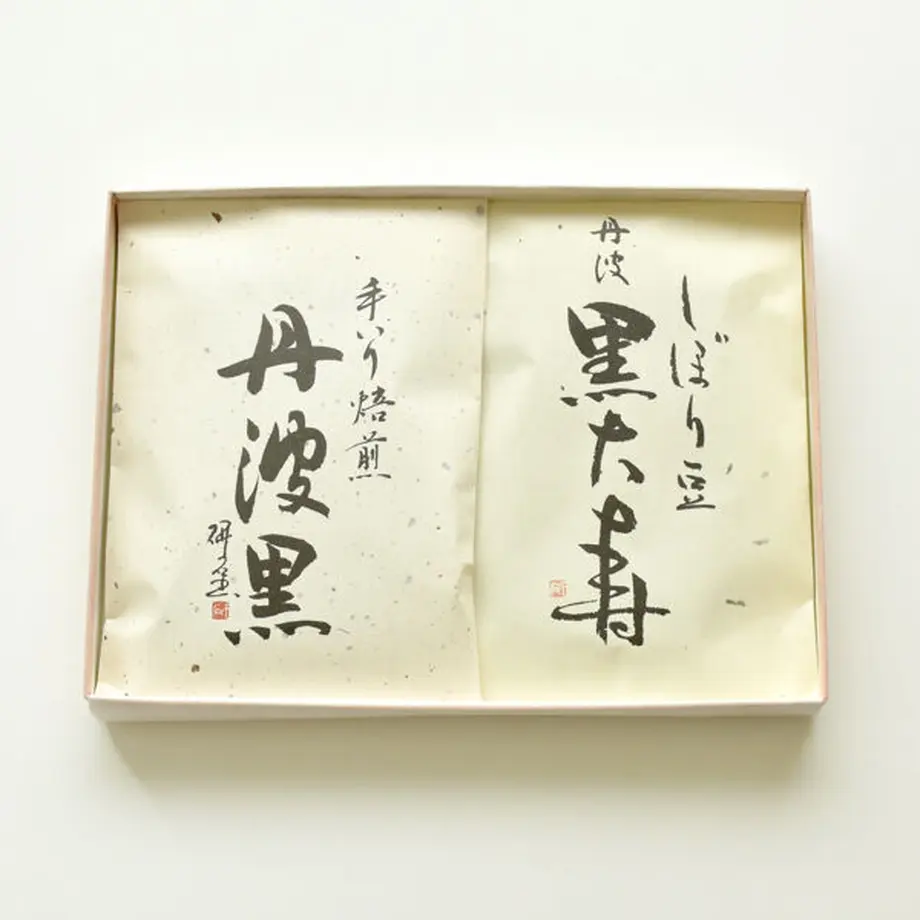 しぼり豆
丹波
黒大寿
手いり焙煎
丹波黒